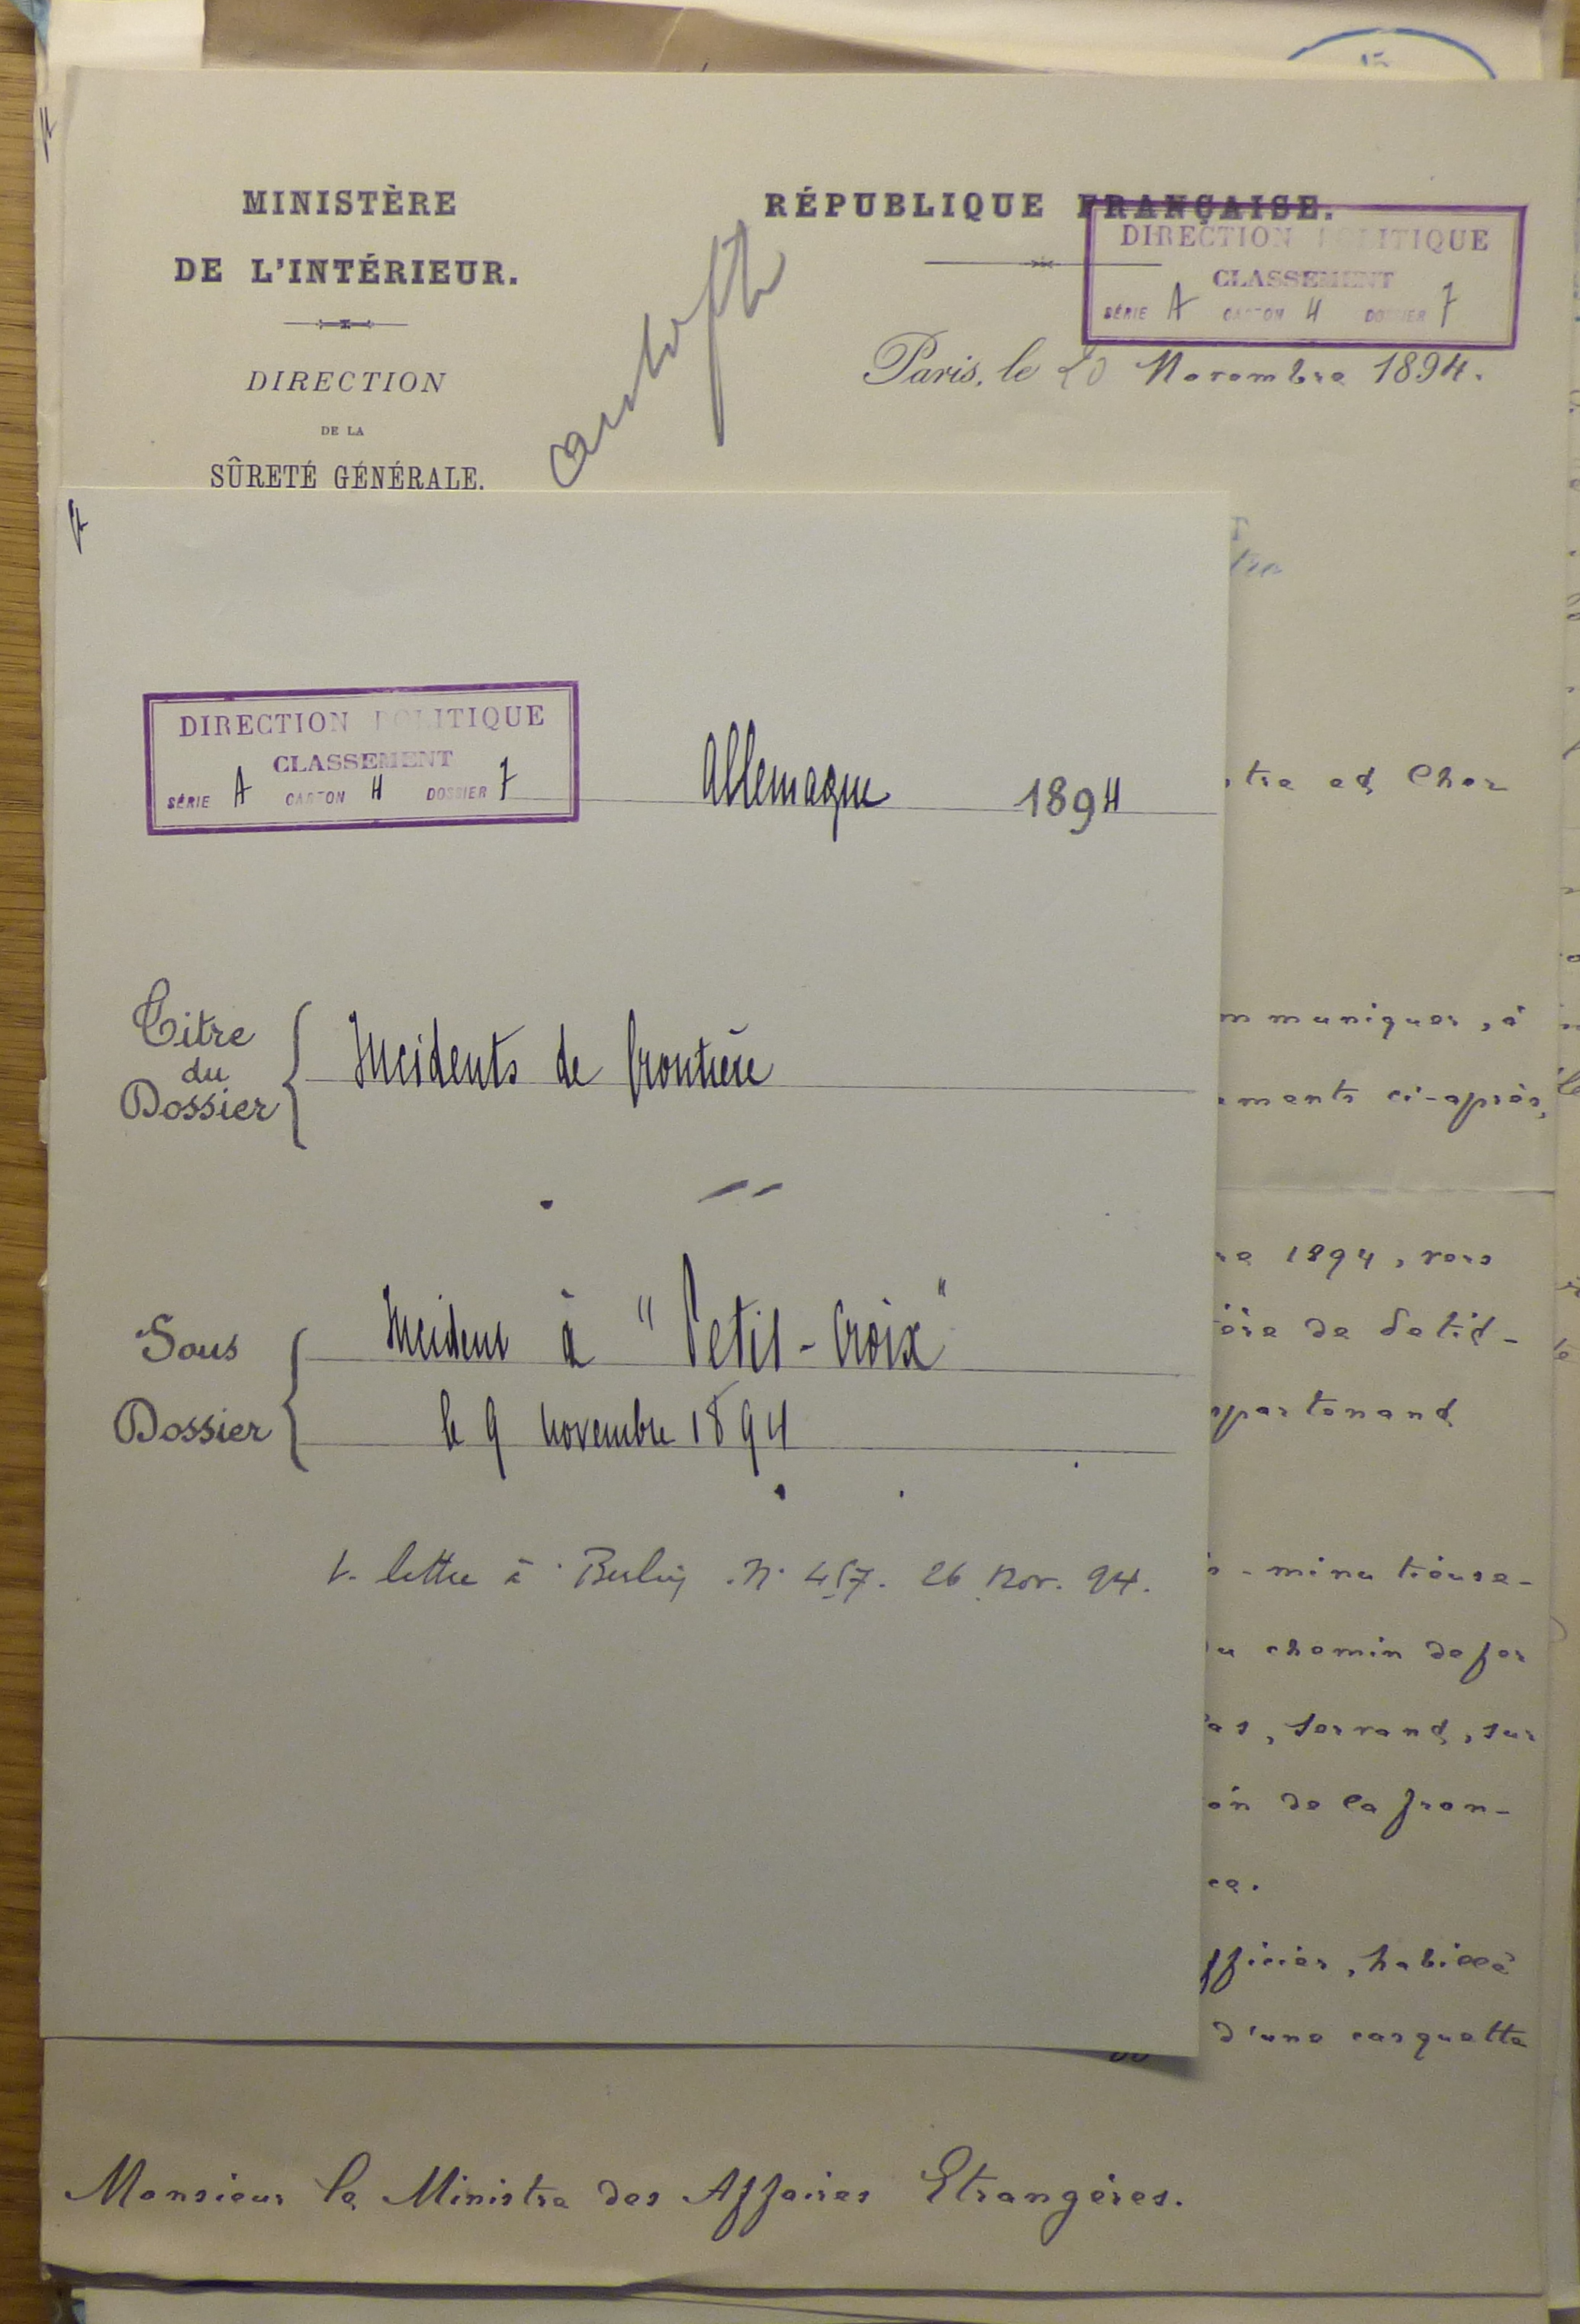 MINISTÈRE
DE L'INTÉRIEUR.
DIRECTION
DE LA
SÛRETÉ GÉNÉRALE.
RÉPUBLIQUE FRANÇAISE.
DIRECTION POLITIQUE
CLASSEMENT
SÉRIE A CARTON 4 DOSSIER 7
Paris, le 20 Novembre 1894.
DIRECTION POLITIQUE
CLASSEMENT
SÉRIE A CARTON 4 DOSSIER 7
Allemagne 1894
Titre
du
Dossier
Incidents de frontière
Sous
Dossier
Incident à "Petit-Croix"
le 9 novembre 1894
V. lettre à Berlin. N. 457. 26 Nov. 94.
tre et Cher
mmuniquer, à
ements ci-après,
re 1894, vers
ière de Petit-
ppartenant
s-minutieuse-
du chemin de fer
as, servant, sur
on de la fron-
ce.
fficier, habillé
d'une casquette
Monsieur le Ministre des Affaires Etrangères.